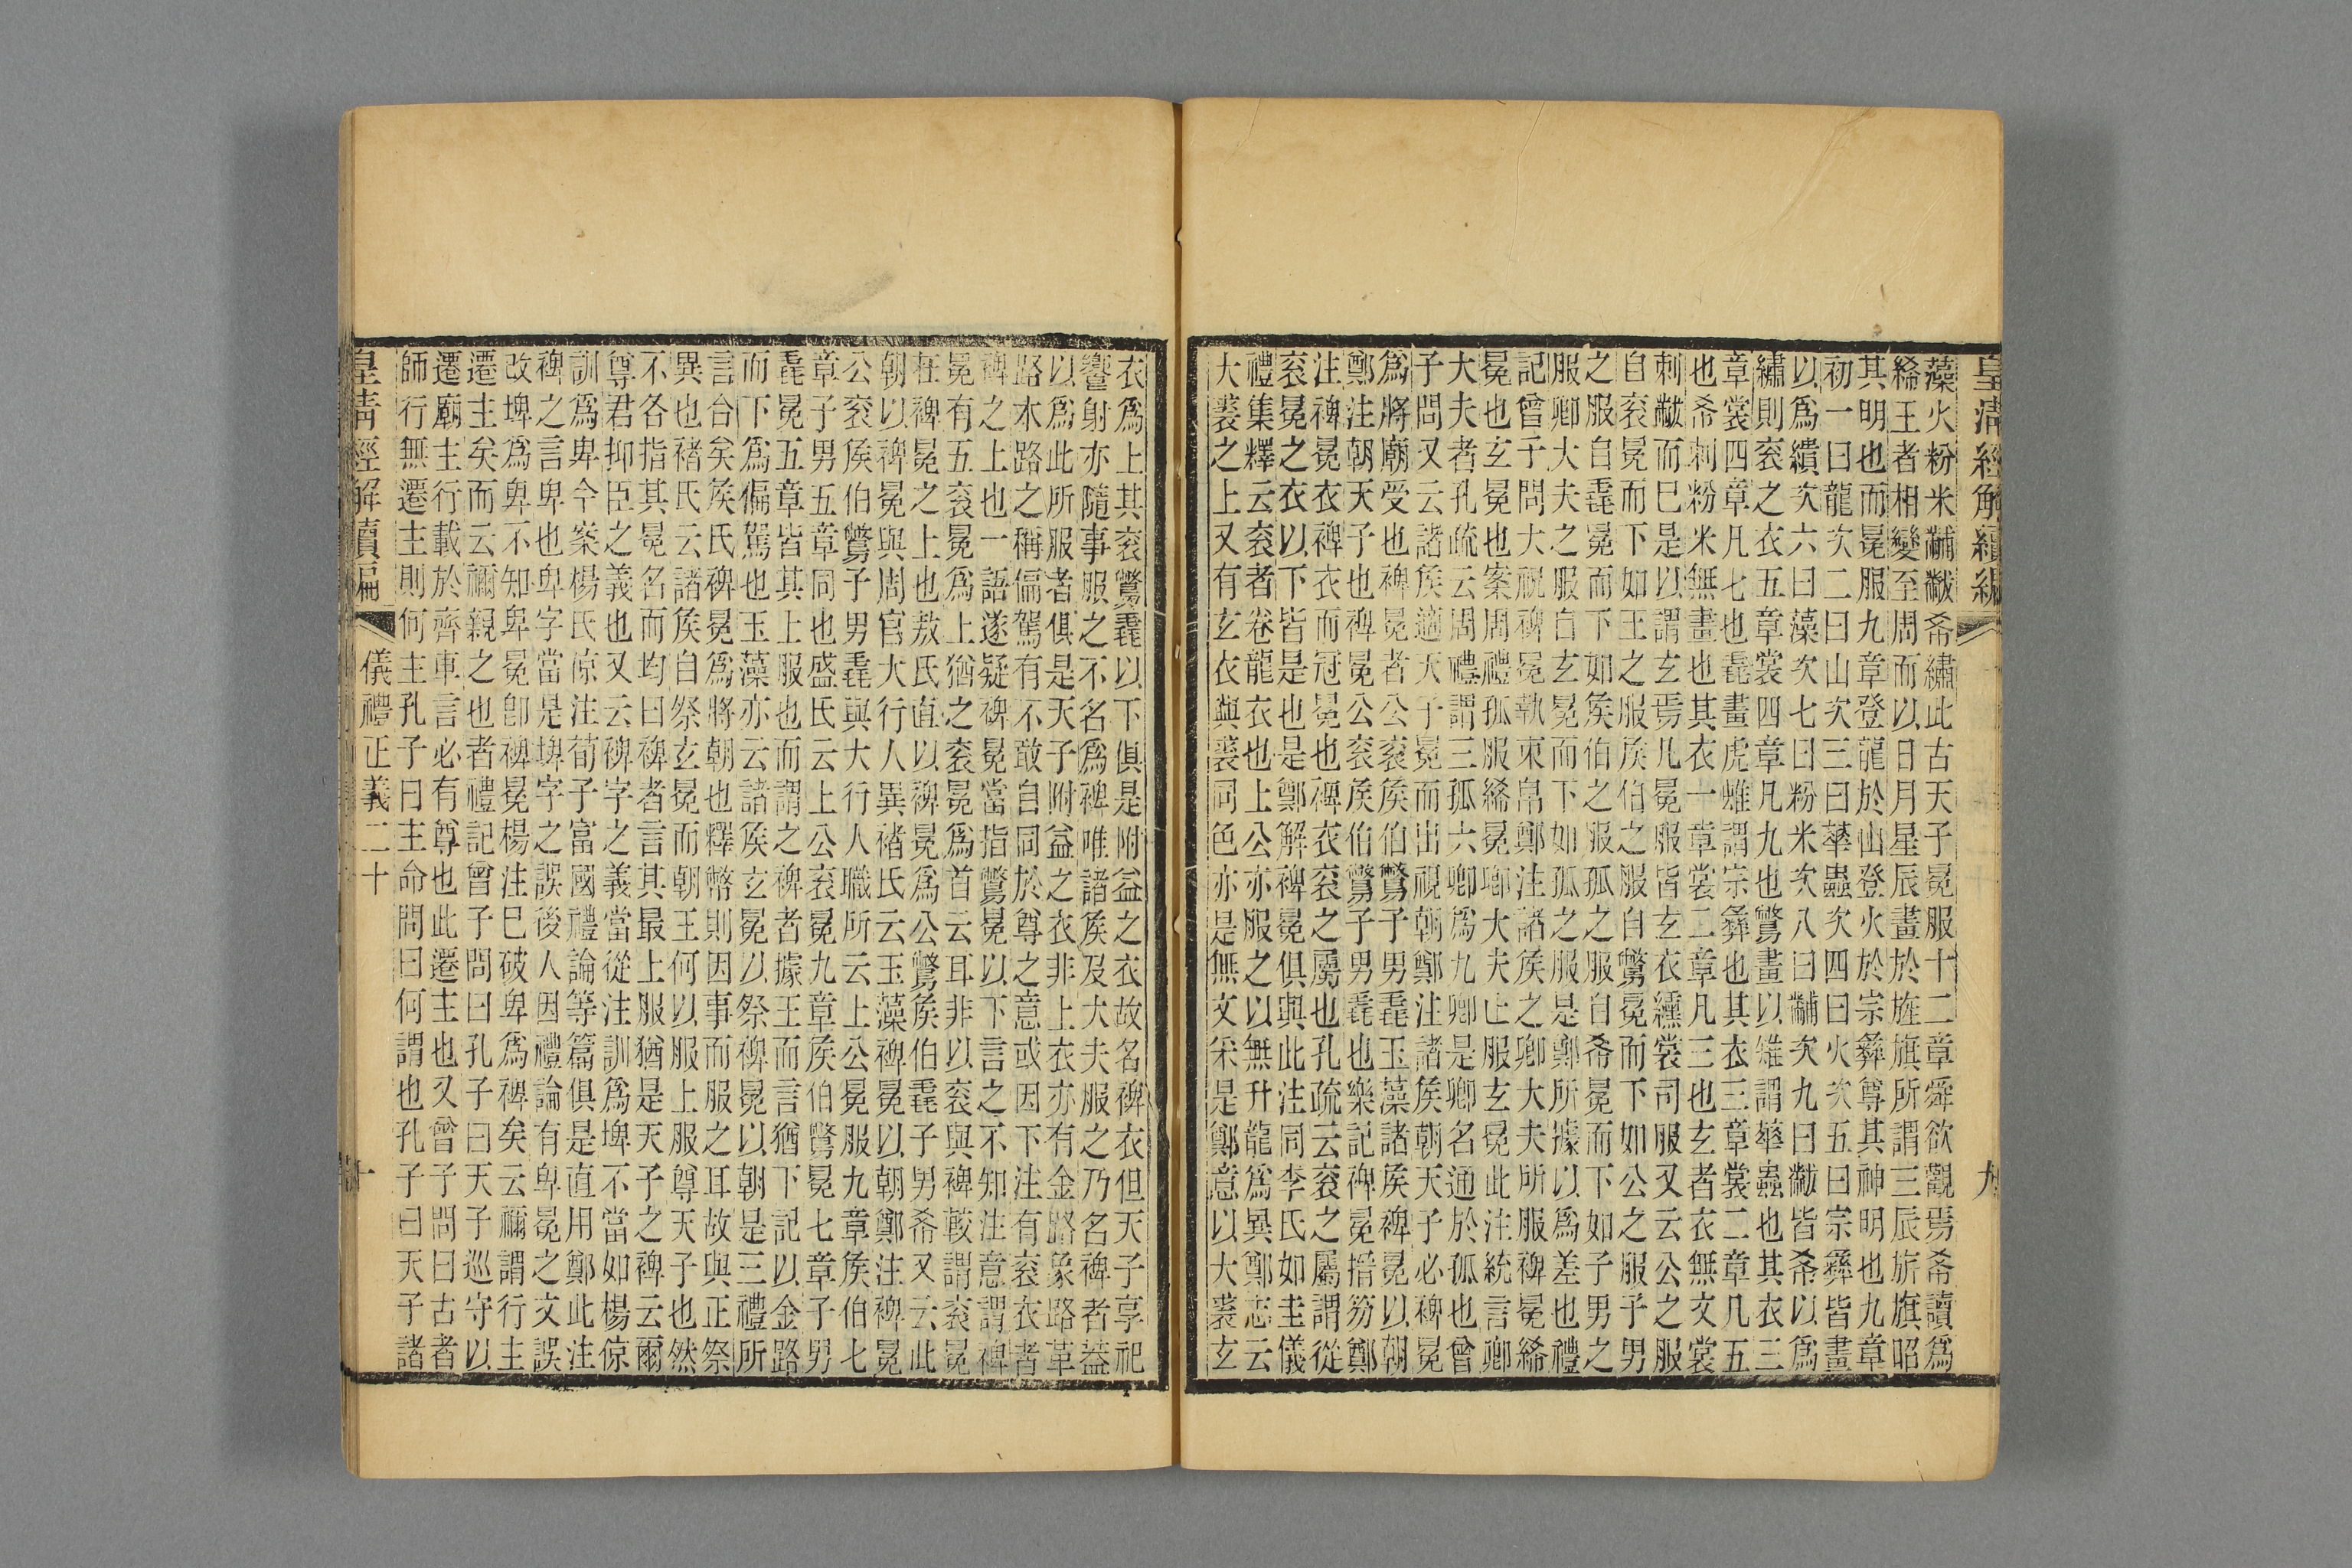 皇清經解續編
九
藻火粉米黼黻希繡此古天子冕服十二章舜欲觀焉希讀爲
絺王者相變至周而以日月星辰畫於旌旗所謂三辰旂旗昭
其明也而冕服九章登龍於山登火於宗彝尊其神明也九章
初一曰龍次二曰山次三曰華蟲次四曰火次五曰宗彝皆畫
以爲繢次六曰藻次七曰粉米次八曰黼次九曰黻皆希以爲
繡則衮之衣五章裳四章凡九也鷩畫以雉謂華蟲也其衣三
章裳四章凡七也毳畫虎蜼謂宗彝也其衣三章裳二章凡五
也希刺粉米無畫也其衣一章裳二章凡三也玄者衣無文裳
刺黻而已是以謂玄焉凡冕服皆玄衣纁裳司服又云公之服
自衮冕而下如王之服矦伯之服自鷩冕而下如公之服子男
之服自毳冕而下如矦伯之服孤之服自希冕而下如子男之
服卿大夫之服自玄冕而下如孤之服是鄭所據以爲差也禮
記曾子問大祝裨冕執束帛鄭注諸矦之卿大夫所服裨冕絺
冕也玄冕也案周禮孤服絺冕卿大夫止服玄冕此注統言卿
大夫者孔疏云周禮謂三孤六卿爲九卿是卿名通於孤也曾
子問又云諸矦適天子冕而出視朝鄭注諸矦朝天子必裨冕
爲將廟受也裨冕者公衮矦伯鷩子男毳玉藻諸矦裨冕以朝
鄭注朝天子也裨冕公衮矦伯鷩子男毳也樂記裨冕搢笏鄭
注裨冕衣裨衣而冠冕也裨衣衮之屬也孔疏云衮之屬謂從
衮冕之衣以下皆是也是鄭解裨冕俱與此注同李氏如圭儀
禮集釋云衮者卷龍衣也上公亦服之以無升龍爲異鄭志云
大裘之上又有玄衣與裘同色亦是無文采是鄭意以大裘玄
衣爲上其衮鷩毳以下俱是附益之衣故名裨衣但天子享祀
饗射亦隨事服之不名爲裨唯諸矦及大夫服之乃名裨者益
以爲此所服者俱是天子附益之衣非上衣亦有金路象路革
路木路之稱偏駕有不敢自同於尊之意或因下注有衮衣者
裨之上也一語遂疑裨冕當指鷩冕以下言之不知注意謂裨
冕有五衮冕爲上猶之衮冕爲首云耳非以衮與裨較謂衮冕
在裨冕之上也敖氏直以裨冕爲公鷩矦伯毳子男希又云此
朝以裨冕與周官大行人異褚氏云玉藻裨冕以朝鄭注裨冕
公衮矦伯鷩子男毳與大行人職所云上公冕服九章矦伯七
章子男五章同也盛氏云上公衮冕九章矦伯鷩冕七章子男
毳冕五章皆其上服也而謂之裨者據王而言猶下記以金路
而下爲偏駕也玉藻亦云諸矦玄冕以祭裨冕以朝是三禮所
言合矣矦氏裨冕爲將朝也釋幣則因事而服之耳故與正祭
異也褚氏云諸矦自祭玄冕而朝王何以服上服尊天子也然
不各指其冕名而均曰裨者言其最上服猶是天子之裨云爾
尊君抑臣之義也又云裨字之義當從注訓爲埤不當如楊倞
訓爲卑今案楊氏倞注荀子富國禮論等篇俱是直用鄭此注
裨之言卑也卑字當是埤字之誤後人因禮論有卑冕之文誤
改埤爲卑不知卑冕卽裨冕楊注已破卑爲裨矣云禰謂行主
遷主矣而云禰親之也者禮記曾子問曰孔子曰天子巡守以
遷廟主行載於齊車言必有尊也此遷主也又曾子問曰古者
師行無遷主則何主孔子曰主命問曰何謂也孔子曰天子諸
皇清經解續編
儀禮正義二十
十